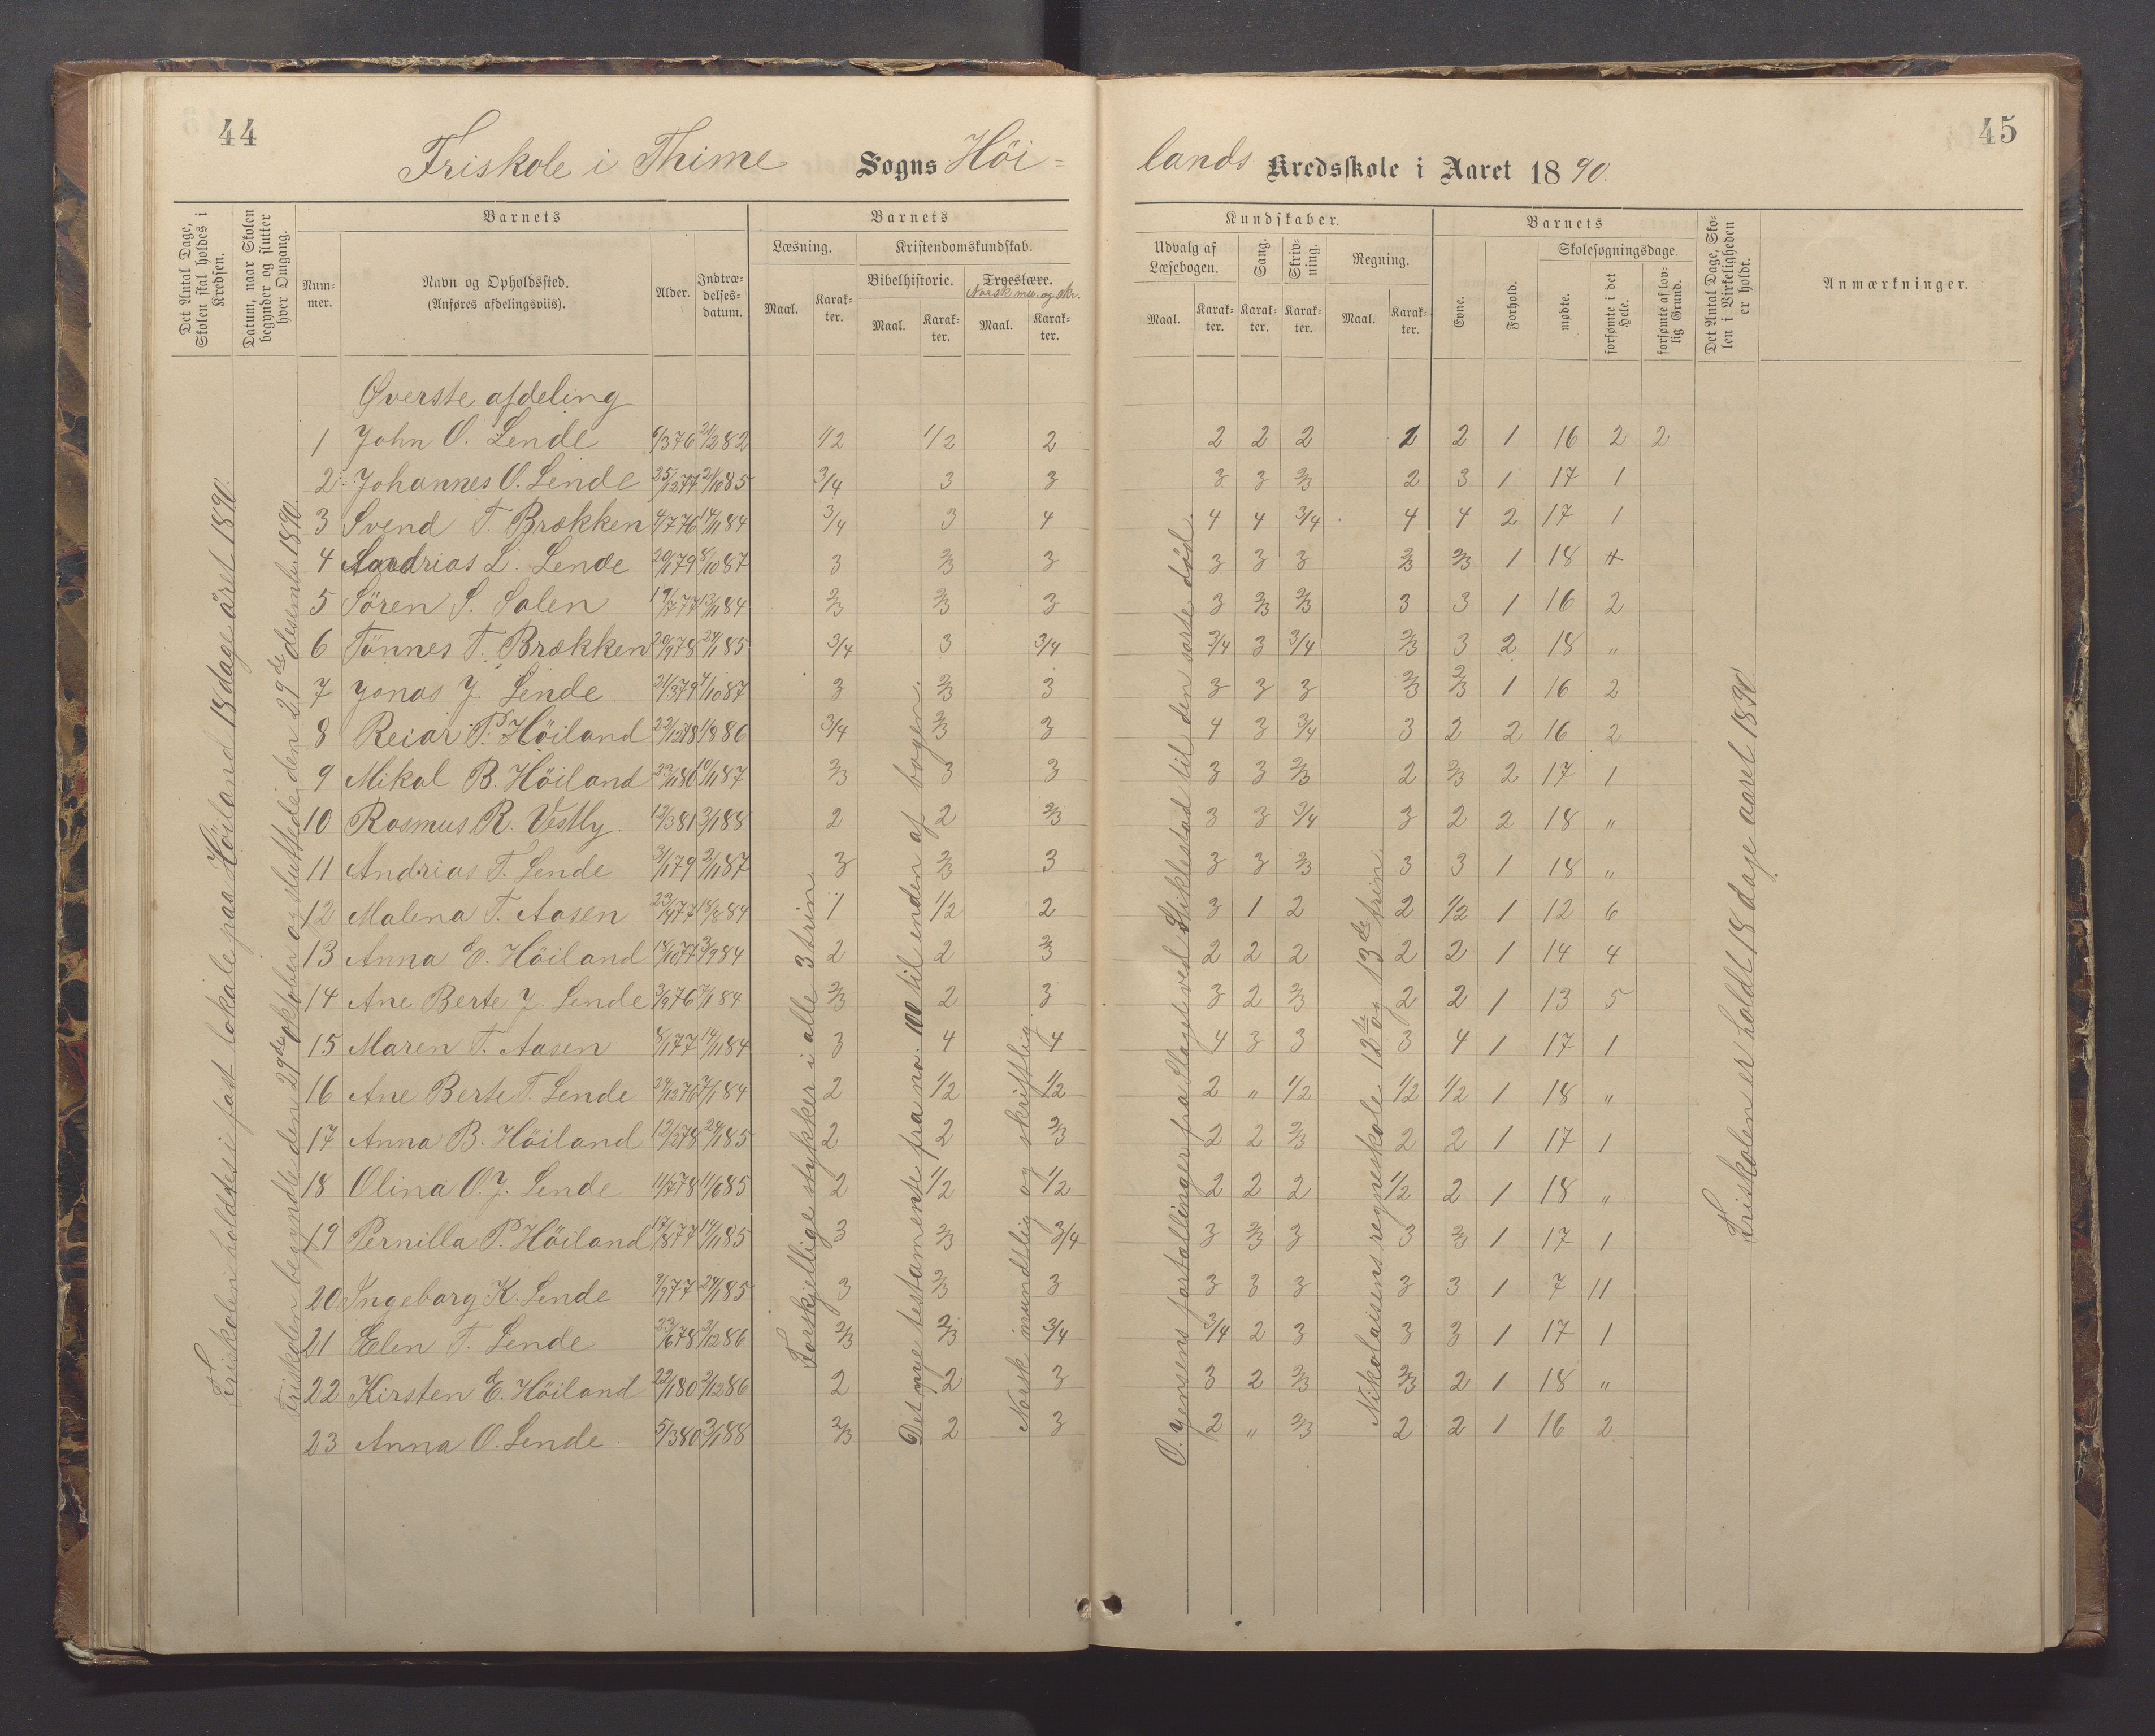 44
45
Friskole i Thime Sogns Höi-
lands Kredsskole i Aaret 1890.
Det Antal Dage, Skolen skal holdes i Kredsen.
Datum, naar Skolen begynder og slutter hver Omgang.
Barnets
Nummer.
Navn og Opholdssted.
(Anføres afdelingsviis).
Alder.
Indtrædelsesdatum.
Barnets
Læsning.
Maal.
Karakter.
Kristendomskundskab.
Bibelhistorie.
Maal.
Karakter.
Troeslære.
Norsk mu. og skr.
Maal.
Karakter.
Kundskaber.
Udvalg af Læsebogen.
Maal.
Karakter.
Sang.
Karakter.
Skrivning.
Karakter.
Regning.
Maal.
Karakter.
Barnets
Evne.
Forhold.
Skolesøgningsdage.
mødte.
forsømte i det Hele.
forsømte af lovlig Grund.
Det Antal Dage, Skolen i Virkeligheden er holdt.
Anmærkninger.
Friskolen holdtes i fast lokale paa Höiland 18 dage året 1890.
Friskolen begyndte den 29de oktober og sluttede den 29de desember 1890.
Forskjellige stykker i alle 3 trin
Det nye testamente fra no. 100 til enden af bogen.
Norsk mundtlig og skriftlig.
O. Jensens fortællinger fra slaget ved Stiklestad til den sorte död.
Nikolaisens regneskole 12te og 13de trin.
Friskolen er holdt 18 dage aaret 1890
Øverste afdeling
1 John O. Lende 6/3 76 21/2 82 1/2 1/2 2 2 2 2 2 2 1 16 2 2
2 Johannes O. Lende 25/12 77 21/10 85 3/4 3 3 3 3 2/3 2 3 1 17 1
3 Svend T. Brækken 4/7 76 14/1 84 3/4 3 4 4 4 3/4 4 4 2 17 1
4 Andrias L. Lende 20/1 79 8/10 87 3 2/3 3 3 3 3 2/3 2/3 1 18
5 Sören S. Salen 19/7 77 13/1 84 2/3 2/3 3 3 2/3 2/3 3 3 1 16 2
6 Tönnes T. Brækken 20/9 78 24/1 85 3/4 3 3/4 3/4 3 3/4 2/3 3 2 18 "
7 Jonas J. Lende 21/3 79 4/10 87 3 2/3 3 3 3 3 2/3 2/3 1 16 2
8 Reiar P. Höiland 22/12 78 1/8 86 3/4 2/3 3 4 3 3/4 3 2 2 16 2
9 Mikal B. Höiland 23/1 80 10/1 87 2/3 3 3 3 3 2/3 2 2/3 2 17 1
10 Rasmus R. Vestly 12/3 81 3/1 88 2 2 2/3 3 3 3/4 3 2 2 18 "
11 Andrias T. Lende 3/1 79 2/11 87 3 2/3 3 3 3 2/3 3 3 1 18 "
12 Malena T. Aasen 23/4 77 18/8 84 1 1/2 2 3 1 2 2 1/2 1 12 6
13 Anna E. Höiland 18/10 77 3/9 84 2 2 2/3 2 2 2 2 2 1 14 4
14 Ane Berte J. Lende 3/9 76 7/1 84 2/3 2 3 3 2 2/3 2 2 1 13 5
15 Maren T. Aasen 8/1 77 14/1 84 3 4 4 4 3 3 3 4 1 17 1
16 Ane Berte T. Lende 24/12 76 7/1 84 2 1/2 1/2 2 " 1/2 1/2 1/2 1 18 "
17 Anna B. Höiland 12/2 78 24/1 85 2 2 2/3 2 2 2/3 2 2 1 17 1
18 Olina O. J. Lende 11/7 78 11/6 85 2 1/2 1/2 2 2 2 1/2 2 1 18 "
19 Pernilla P. Höiland 17/8 77 14/1 85 3 2/3 3/4 3 2/3 3 3 2/3 1 17 1
20 Ingeborg K. Lende 9/9 77 24/1 85 3 2/3 3 3 3 3 3 3 1 7 11
21 Elen T. Lende 23/6 78 2/12 86 2/3 2/3 3/4 3/4 2 3 3 3 1 17 1
22 Kirsten E. Höiland 22/1 80 2/12 86 2 2 3 3 2 2/3 2/3 2 1 18 "
23 Anna O. Lende 5/3 80 3/1 88 2/3 2 3 2 " 2/3 2 2 1 16 2